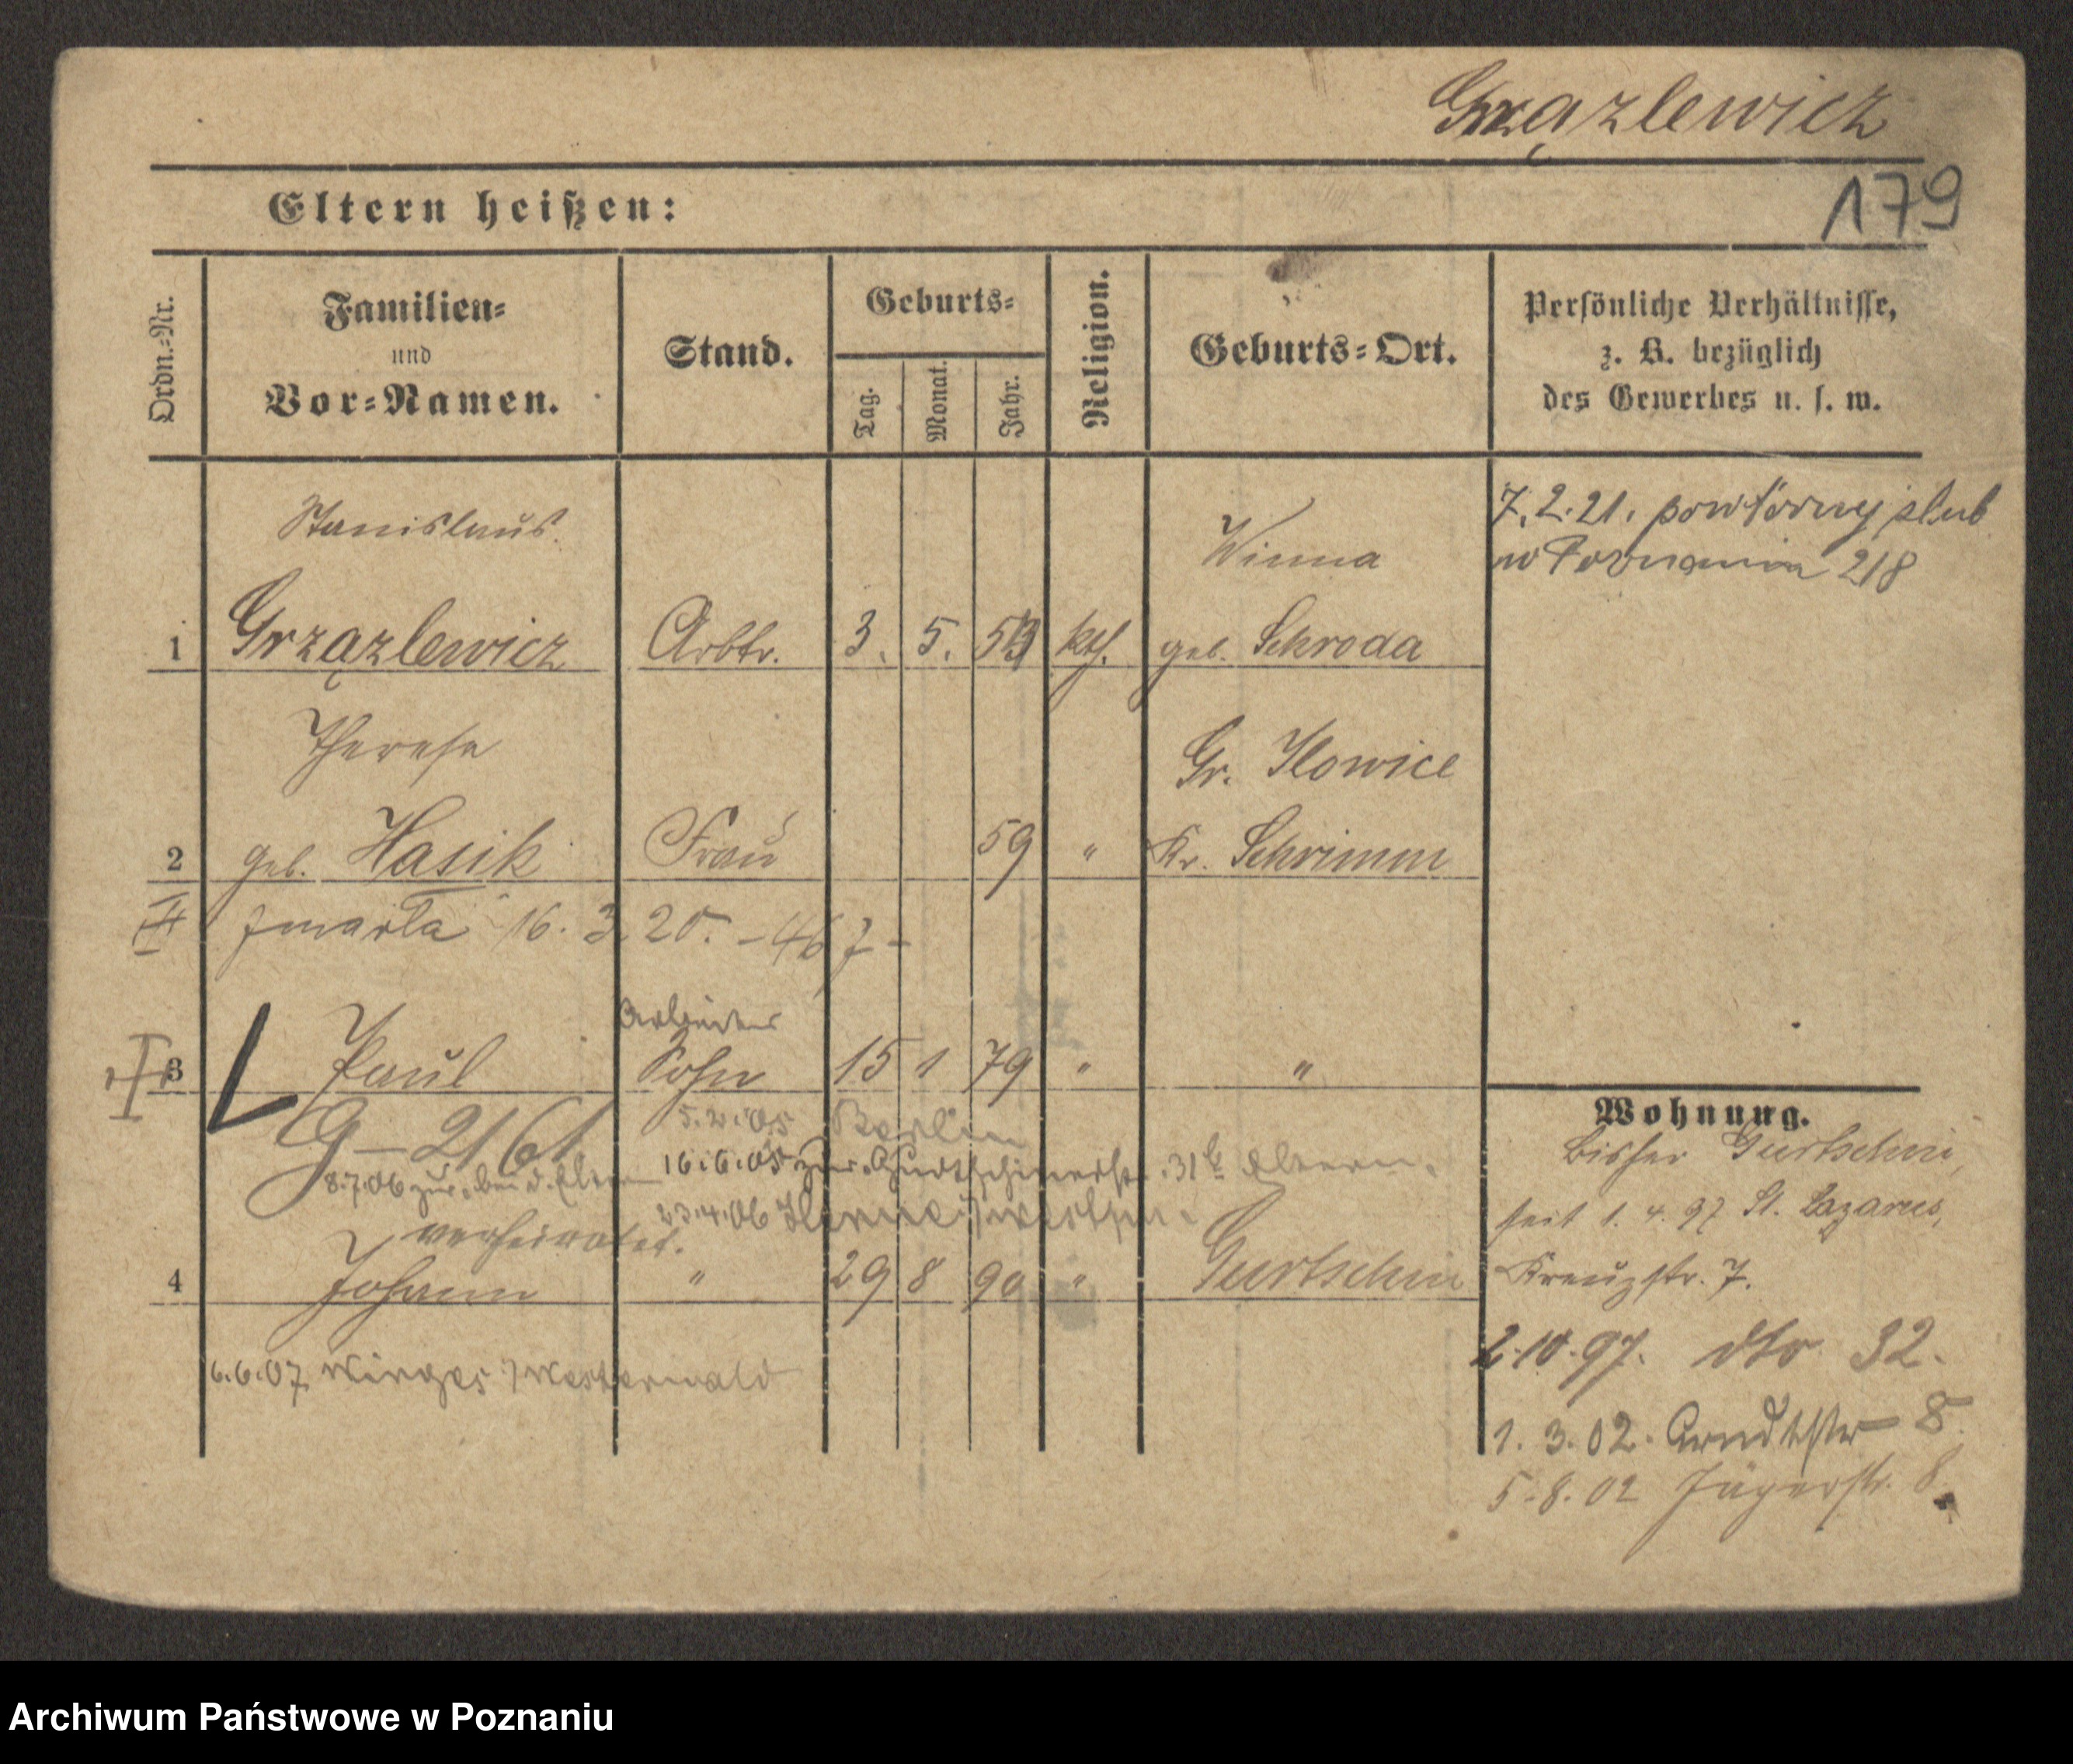 Grzązlewicz
179
Eltern heißen:
Ordn.-Nr.
Familien-
und
Vor-Namen.
Stand.
Geburts-
Tag.
Monat.
Jahr.
Religion.
Geburts-Ort.
Persönliche Verhältnisse,
z. B. bezüglich
des Gewerbes u. s. w.
7.2.21. powtórny ślub
w Poznaniu 218
Stanislaus
Winna
1 Grzązlewicz Arbtr. 3. 5. 53 kth. geb. Schroda
Therese
Gr. Ilowice
2 geb. Hasik Frau 59 " Kr. Schrimm
II zmarła 16. 3. 20. - 467 -
Arbeiter
3 Paul Sohn 15 1 79 " "
G-2161
5.2.05 Berlin
16.6.05 zur. Gurtschinerstr. 31 b. Eltern.
8.7.06 zur. bei d. Eltern
23.4.06 Herne i/Westfn.
verheiratet.
4 Johann " 29 8 90 " Gurtschin
6.6.07 Wirges i/Westerwald
Wohnung.
bisher Gurtschin,
seit 1. 4. 97 St. Lazarus,
Kreuzstr. 7.
2.10.97. dto 32.
1. 3. 02. Arndtstr 8
5. 8. 02 Jägerstr. 8.
Archiwum Państwowe w Poznaniu